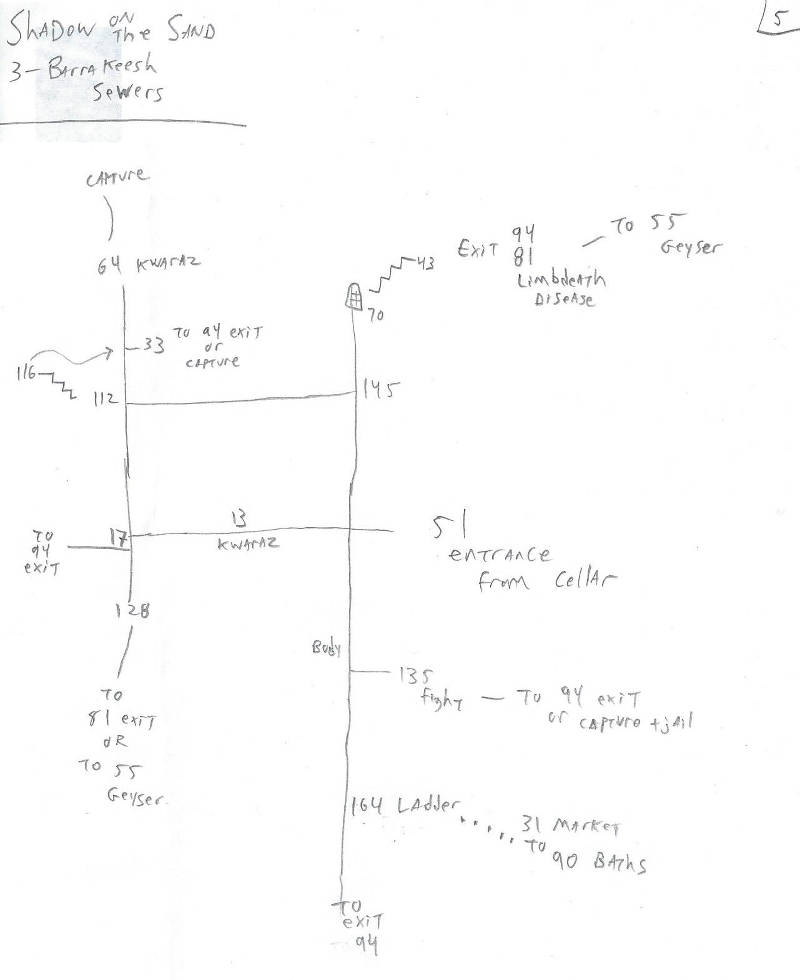 Shadow on the Sand
5
3 - Barrakeesh
Sewers
Capture
64 Kwaraz
33 To 94 exit
or
capture
116
112
145
70
43
Exit 94
81
Limbdeath
Disease
To 55
Geyser
13
Kwaraz
17
To
94
exit
128
To
81 exit
or
To 55
Geyser
51
entrance
from cellar
Body
135
fight — To 94 exit
or capture + jail
164 Ladder
31 Market
To
90 Baths
To
exit
94